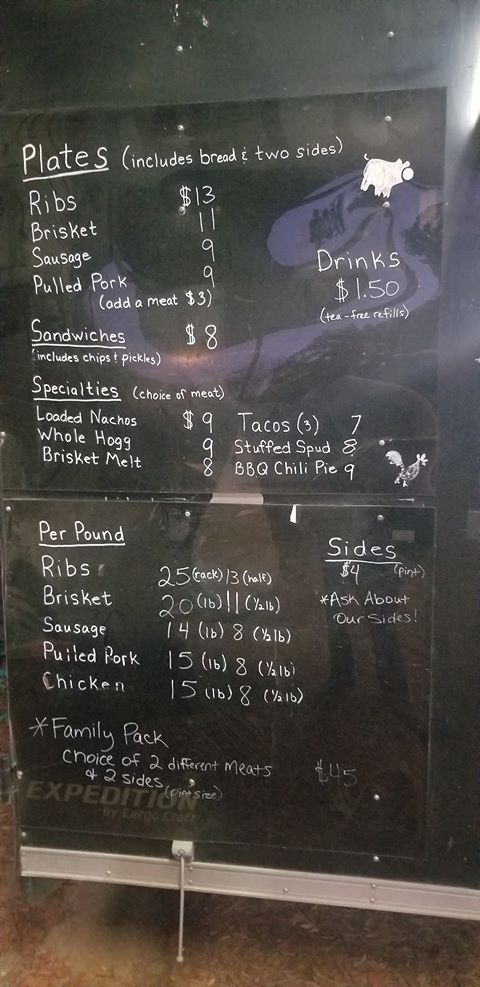 Plates (includes bread & two sides)
Ribs $13
Brisket 11
Sausage 9
Pulled Pork 9
(add a meat $3)
Drinks
$1.50
(tea-free refills)
Sandwiches $8
(includes chips & pickles)
Specialties (choice of meat)
Loaded Nachos $9
Whole Hogg 9
Brisket Melt 8
Tacos (3) 7
Stuffed Spud 8
BBQ Chili Pie 9
Per Pound
Ribs 25 (rack) 13 (half)
Brisket 20 (lb) 11 (½ lb)
Sausage 14 (lb) 8 (½ lb)
Pulled Pork 15 (lb) 8 (½ lb)
Chicken 15 (lb) 8 (½ lb)
Sides
$4 (pint)
*Ask About
Our Sides!
*Family Pack
choice of 2 different meats $45
& 2 sides (pint size)
EXPEDITION
by Cargo Craft